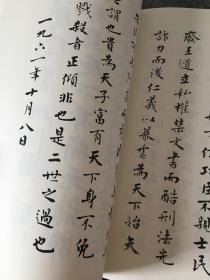 仁功臣不親士民
廢王道立私權禁文書而酷刑法先
詐力而後仁義以暴虐為天下始夫
之謂也貴為天子富有天下身不免
戮殺者正傾非也是二世之過也
一九六一年十月八日